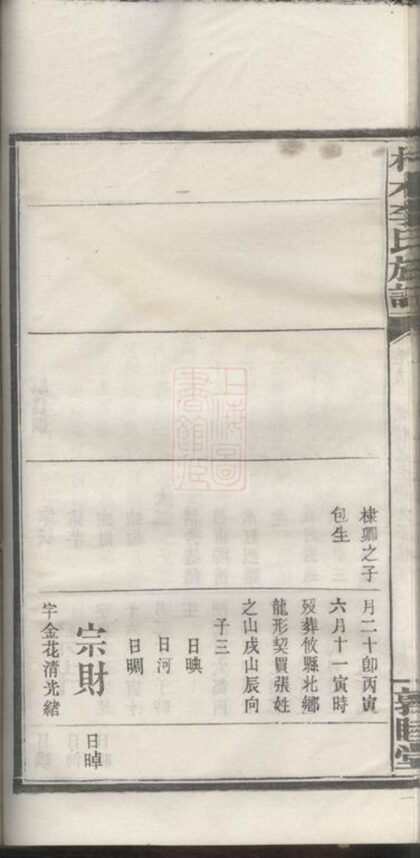 李氏族譜
敦睦堂
棣卿之子
包生
月二十卽丙寅
六月十一寅時
歿葬攸縣北鄉
龍形契買張姓
之山戌山辰向
子三
日暎
日河
日晭
宗財
字金花清光緒
日晫
上海圖書館藏